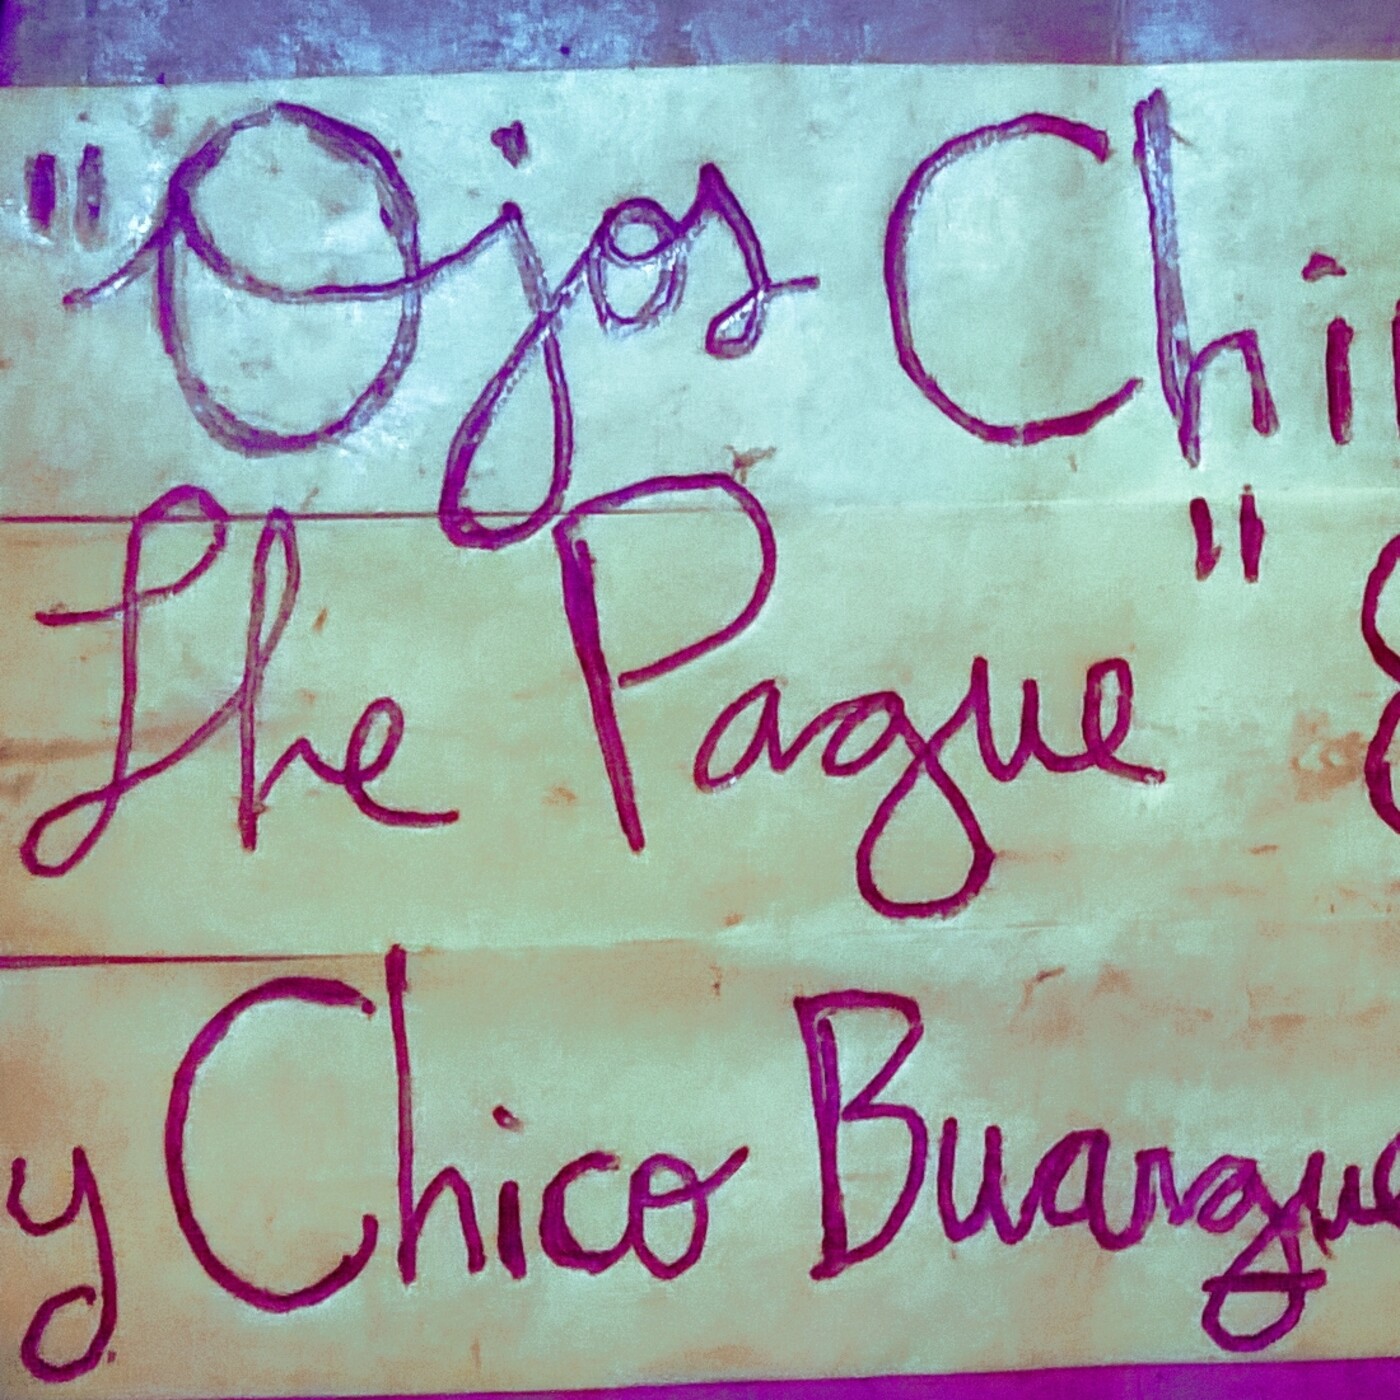 "Ojos Chi
Lhe Pague"
y Chico Buarque